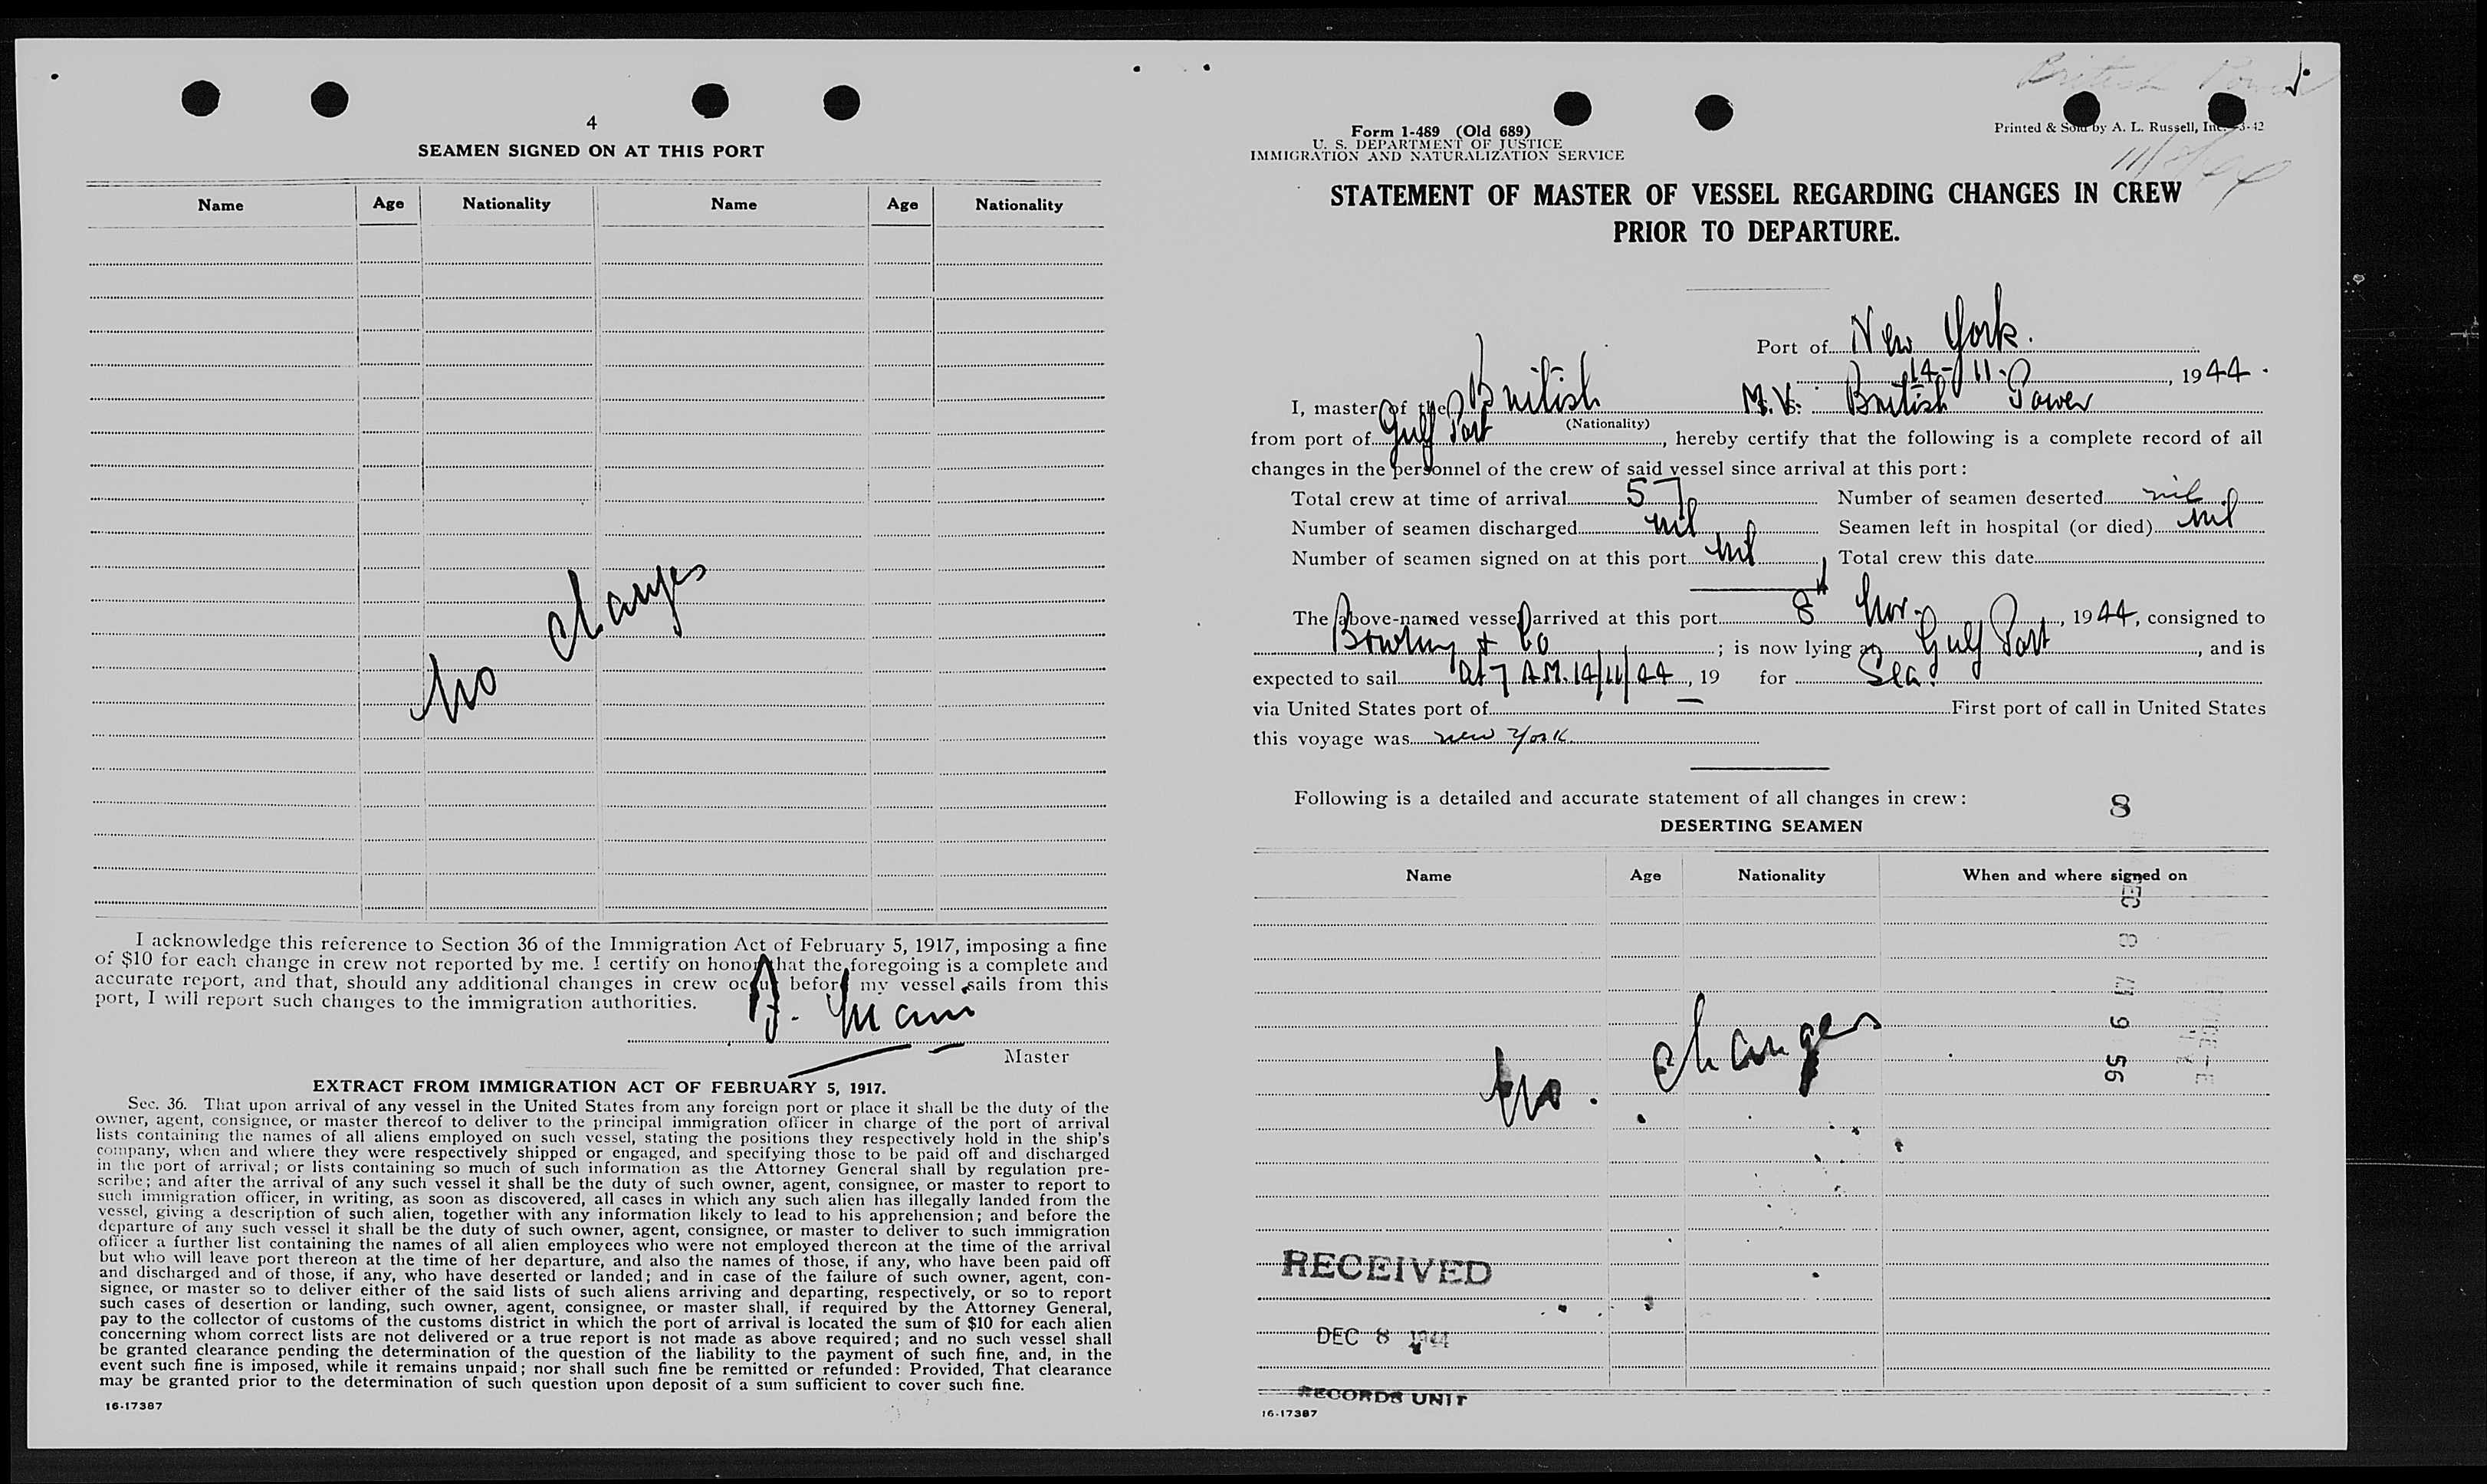 4
SEAMEN SIGNED ON AT THIS PORT
Name Age Nationality Name Age Nationality
No changes
I acknowledge this reference to Section 36 of the Immigration Act of February 5, 1917, imposing a fine
of $10 for each change in crew not reported by me. I certify on honor that the foregoing is a complete and
accurate report, and that, should any additional changes in crew occur before my vessel sails from this
port, I will report such changes to the immigration authorities.
Master
EXTRACT FROM IMMIGRATION ACT OF FEBRUARY 5, 1917.
Sec. 36. That upon arrival of any vessel in the United States from any foreign port or place it shall be the duty of the
owner, agent, consignee, or master thereof to deliver to the principal immigration officer in charge of the port of arrival
lists containing the names of all aliens employed on such vessel, stating the positions they respectively hold in the ship's
company, when and where they were respectively shipped or engaged, and specifying those to be paid off and discharged
in the port of arrival; or lists containing so much of such information as the Attorney General shall by regulation pre-
scribe; and after the arrival of any such vessel it shall be the duty of such owner, agent, consignee, or master to report to
such immigration officer, in writing, as soon as discovered, all cases in which any such alien has illegally landed from the
vessel, giving a description of such alien, together with any information likely to lead to his apprehension; and before the
departure of any such vessel it shall be the duty of such owner, agent, consignee, or master to deliver to such immigration
officer a further list containing the names of all alien employees who were not employed thereon at the time of the arrival
but who will leave port thereon at the time of her departure, and also the names of those, if any, who have been paid off
and discharged and of those, if any, who have deserted or landed; and in case of the failure of such owner, agent, con-
signee, or master so to deliver either of the said lists of such aliens arriving and departing, respectively, or so to report
such cases of desertion or landing, such owner, agent, consignee, or master shall, if required by the Attorney General,
pay to the collector of customs of the customs district in which the port of arrival is located the sum of $10 for each alien
concerning whom correct lists are not delivered or a true report is not made as above required; and no such vessel shall
be granted clearance pending the determination of the question of the liability to the payment of such fine, and, in the
event such fine is imposed, while it remains unpaid; nor shall such fine be remitted or refunded: Provided, That clearance
may be granted prior to the determination of such question upon deposit of a sum sufficient to cover such fine.
16-17387
British Power
Form 1-489 (Old 689)
U. S. DEPARTMENT OF JUSTICE
IMMIGRATION AND NATURALIZATION SERVICE
Printed & Sold by A. L. Russell, Inc. 3-42
11/8/44
STATEMENT OF MASTER OF VESSEL REGARDING CHANGES IN CREW
PRIOR TO DEPARTURE.
Port of New York.
14-11- , 1944.
I, master of the British M.V. British Power
(Nationality)
from port of Gulf Port, hereby certify that the following is a complete record of all
changes in the personnel of the crew of said vessel since arrival at this port:
Total crew at time of arrival 57 Number of seamen deserted nil
Number of seamen discharged nil Seamen left in hospital (or died) nil
Number of seamen signed on at this port nil Total crew this date
The above-named vessel arrived at this port 8th Nov. , 1944, consigned to
Bowring & Co ; is now lying at Gulf Port , and is
expected to sail at 7 A.M. 14/11/44, 19 for Sea.
via United States port of First port of call in United States
this voyage was New York
Following is a detailed and accurate statement of all changes in crew: 8
DESERTING SEAMEN
Name Age Nationality When and where signed on
DEC 8 17 9 56
No. changes
RECEIVED
DEC 8 1944
RECORDS UNIT
16-17387